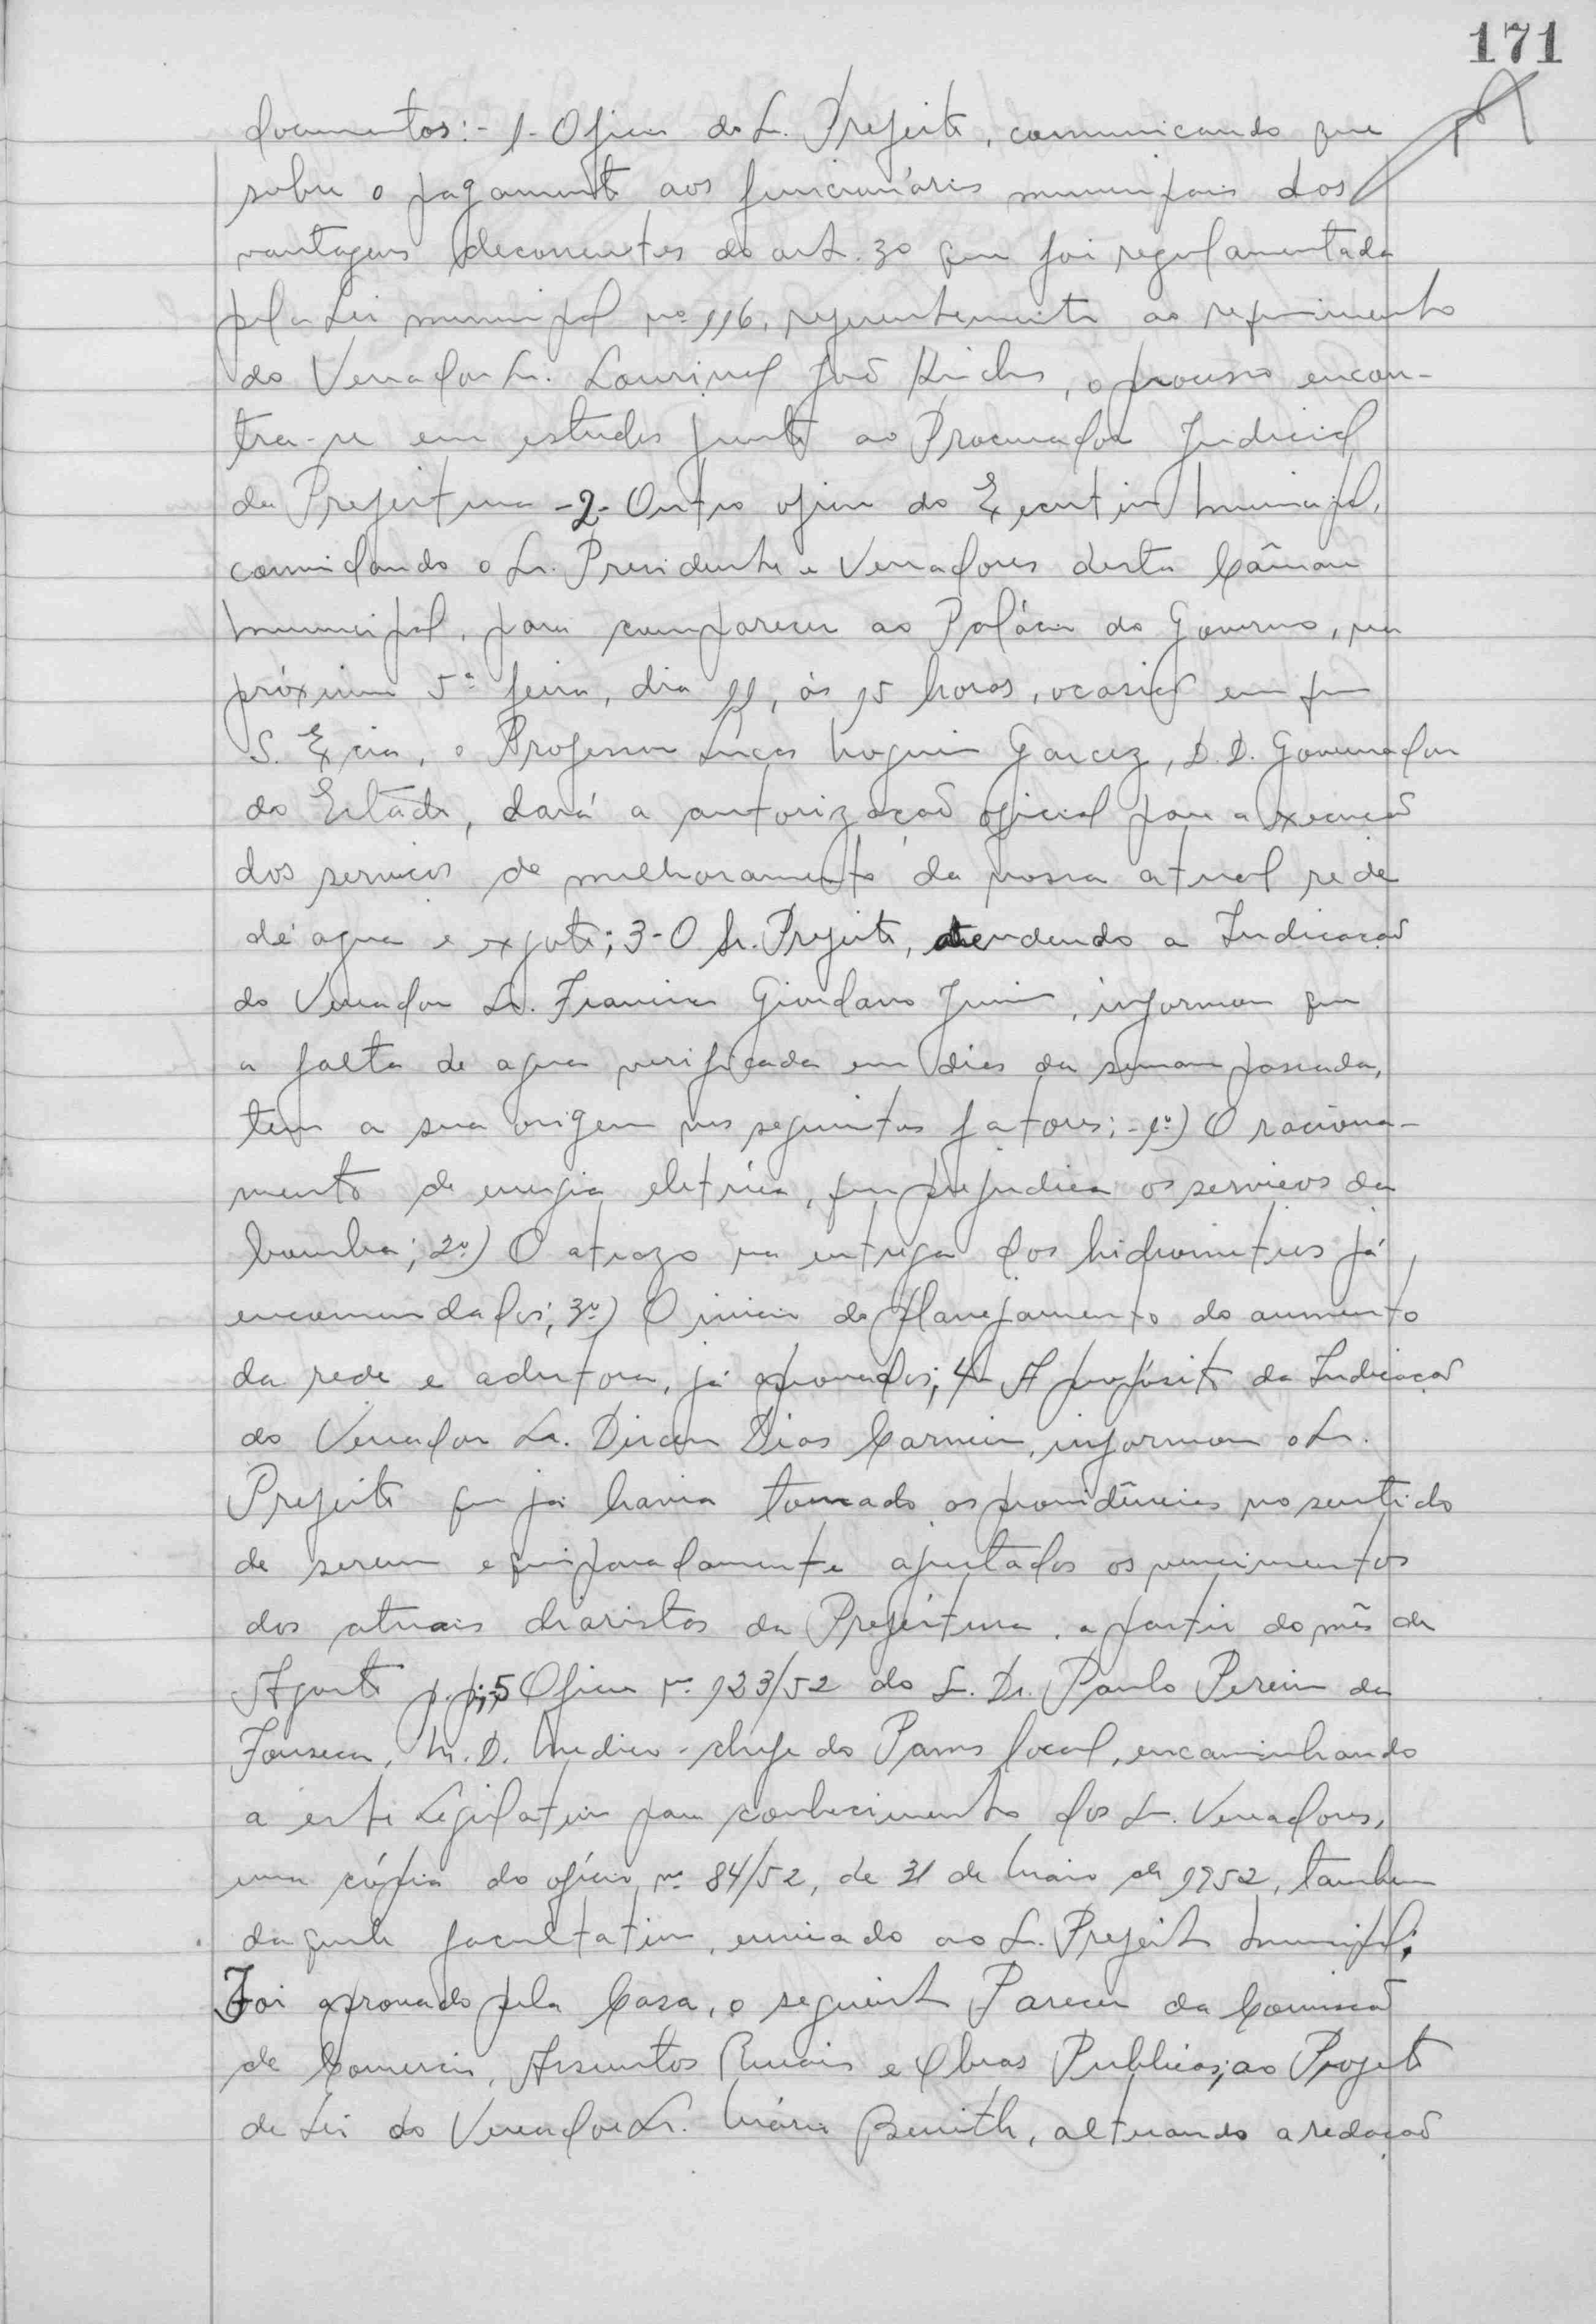 171
documentos:- 1- Oficio do Sr. Prefeito, comunicando que
sobre o pagamento aos funcionários municipais dos
vantagens decorrentes do art. 30 que foi regulamentada
pela Lei municipal nº 116, referentemente ao requerimento
do Vereador Sr. Lourival João, o processo encon-
tra-se em estudos junto ao Procurador Judicial
da Prefeitura -2- Outro oficio do Executivo Municipal,
convidando o Sr. Presidente e Vereadores desta Câmara
Municipal, para comparecer ao Palácio do Governo, na
próxima 5ª feira, dia 11, ás 15 horas, ocasião em que
S. Excia, o Professor Lucas Nogueira Garcez, D.D. Governador
do Estado, dará a autorização oficial para a execução
dos serviços de melhoramento da nossa atual rede
de agua e exgoto; 3- O Sr. Prefeito, atendendo a Indicação
do Vereador Sr. Francisco Giordano Junior, informou que
a falta de agua verificada em dias da semana passada,
tem a sua origem nos seguintes fatores:- 1º) O raciona-
mento de energia eletrica, que prejudica os serviços da
bomba; 2º) O atrazo na entrega dos hidrometros já
encomendados; 3º) O inicio do planejamento do aumento
da rede e adutora, já aprovados; 4- A propósito da Indicação
do Vereador Sr. Dirceu Dias Carneiro, informou o Sr.
Prefeito que já havia tomado as providências no sentido
de serem equiparadamente ajustados os vencimentos
dos atuais diaristas da Prefeitura, a partir do mês de
Agosto p.p.; 5 Oficio nº 123/52 do Sr. Dr. Paulo Pereira da
Fonseca, M.D. Medico-chefe do Pams local, encaminhando
a este Legislativo para conhecimento dos Sr. Vereadores,
uma cópia do ofício nº 84/52, de 31 de Maio de 1952, tambem
daquele facultativo, enviado ao Sr. Prefeito Municipal.
Foi aprovado pela Casa, o seguinte Parecer da Comissão
de Comercio, Assuntos Rurais e Obras Publicas, ao Projeto
de Lei do Vereador Sr. Mário, alterando a redação